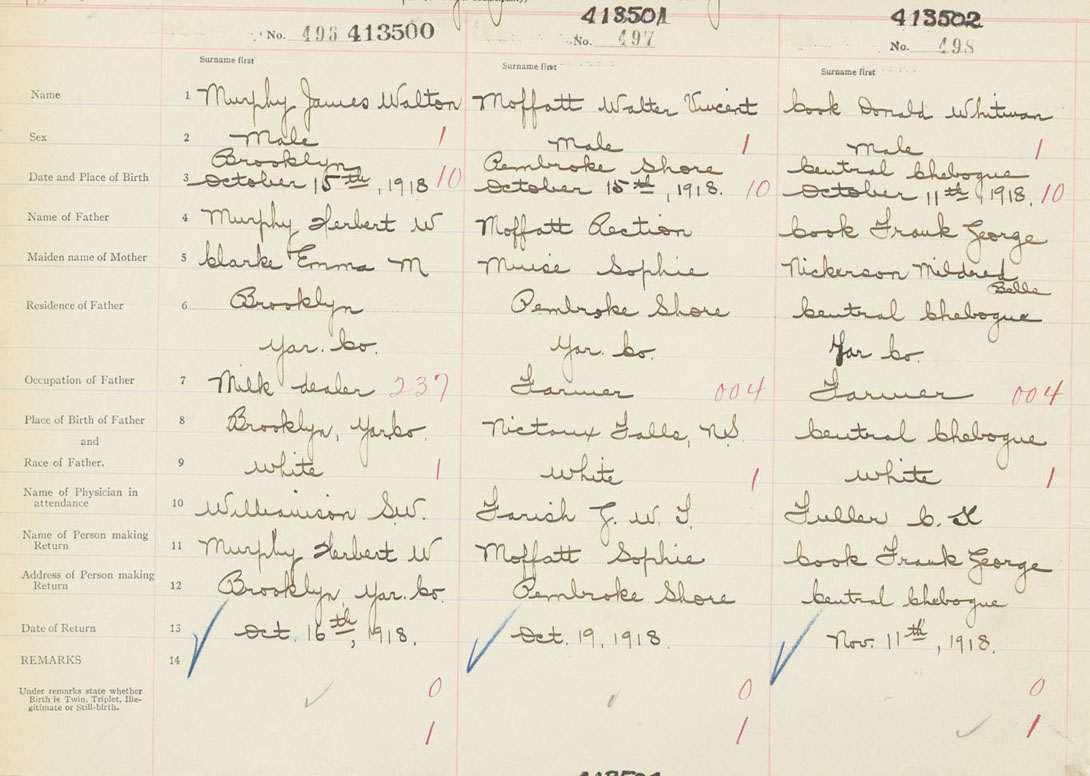 413501
413502
No. 496 413500
No. 497
No. 498
Surname first
Surname first
Surname first
Name 1 Murphy James Walton Moffatt Walter Vincent Cook Donald Whitman
Sex 2 Male 1 Male 1 Male 1
Brooklyn Pembroke Shore Central Chebogue
Date and Place of Birth 3 October 15th, 1918 10 October 15th, 1918. 10 October 11th, 1918. 10
Name of Father 4 Murphy Herbert W Moffatt Rection Cook Frank George
Maiden name of Mother 5 Clarke Emma M Muise Sophie Nickerson Mildred
Belle
Residence of Father 6 Brooklyn Pembroke Shore Central Chebogue
Yar. Co. Yar. Co. Yar Co.
Occupation of Father 7 Milk dealer 237 Farmer 004 Farmer 004
Place of Birth of Father 8 Brooklyn, Yar Co. Nictaux Falls, N.S. Central Chebogue
and
Race of Father. 9 white 1 white 1 white 1
Name of Physician in
attendance 10 Williamson S.W. Farish G. W. T. Fuller C. K
Name of Person making
Return 11 Murphy Herbert W Moffatt Sophie Cook Frank George
Address of Person making
Return 12 Brooklyn, Yar. Co. Pembroke Shore Central Chebogue
Date of Return 13 Oct. 16th, 1918. Oct. 19, 1918. Nov. 11th, 1918.
REMARKS 14
Under remarks state whether
Birth is Twin, Triplet, Ille-
gitimate or Still-birth.
0 0 0
1 1 1